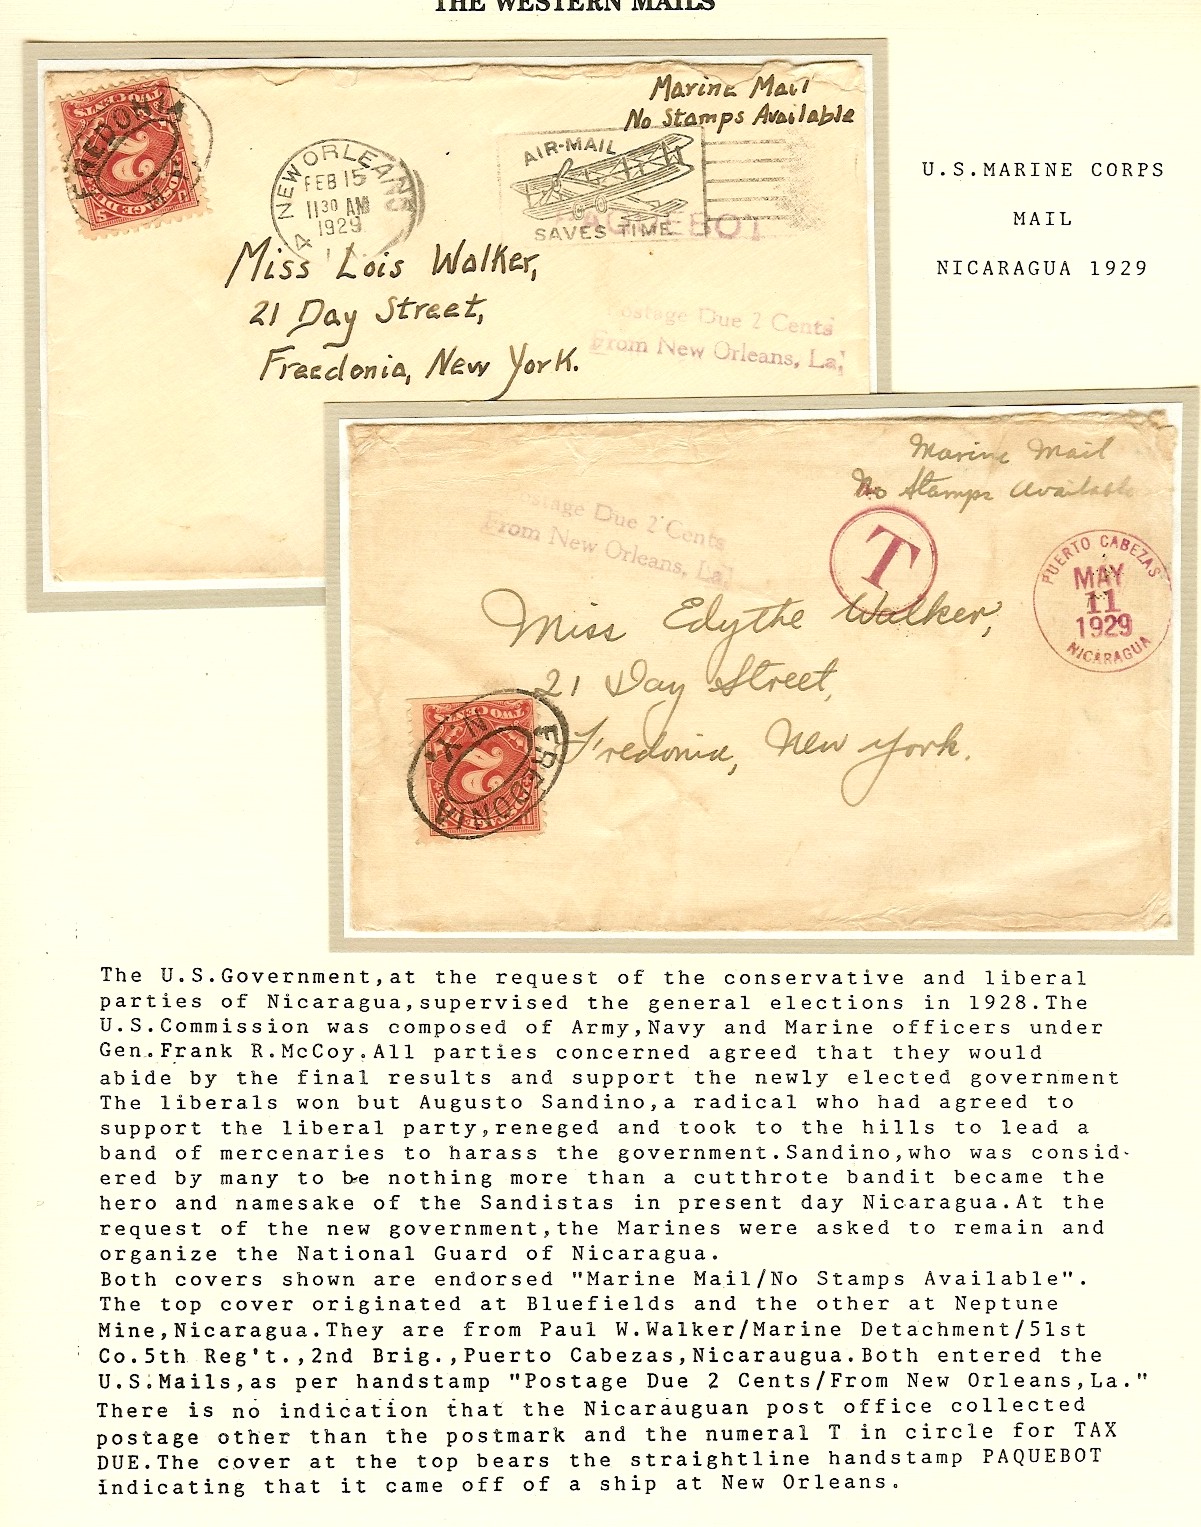 THE WESTERN MAILS
Marine Mail
No Stamps Available
TWO CENTS
2
POSTAGE DUE
FREDONIA
N.Y.
NEW ORLEANS
FEB 15
11 30 AM
1929
4
AIR-MAIL
SAVES TIME
PAQUEBOT
Miss Lois Walker,
21 Day Street,
Freedonia, New York.
Postage Due 2 Cents
From New Orleans, La.
U.S.MARINE CORPS
MAIL
NICARAGUA 1929
Marine Mail
No Stamps Available
Postage Due 2 Cents
From New Orleans, La.
T
PUERTO CABEZAS
MAY
11
1929
NICARAGUA
Miss Edythe Walker,
21 Day Street,
Fredonia, New York.
TWO CENTS
2
POSTAGE DUE
FREDONIA
N.Y.
The U.S.Government,at the request of the conservative and liberal
parties of Nicaragua,supervised the general elections in 1928.The
U.S.Commission was composed of Army,Navy and Marine officers under
Gen.Frank R.McCoy.All parties concerned agreed that they would
abide by the final results and support the newly elected government
The liberals won but Augusto Sandino,a radical who had agreed to
support the liberal party,reneged and took to the hills to lead a
band of mercenaries to harass the government.Sandino,who was consid-
ered by many to be nothing more than a cutthrote bandit became the
hero and namesake of the Sandistas in present day Nicaragua.At the
request of the new government,the Marines were asked to remain and
organize the National Guard of Nicaragua.
Both covers shown are endorsed "Marine Mail/No Stamps Available".
The top cover originated at Bluefields and the other at Neptune
Mine,Nicaragua.They are from Paul W.Walker/Marine Detachment/51st
Co.5th Reg't.,2nd Brig.,Puerto Cabezas,Nicaraugua.Both entered the
U.S.Mails,as per handstamp "Postage Due 2 Cents/From New Orleans,La."
There is no indication that the Nicarauguan post office collected
postage other than the postmark and the numeral T in circle for TAX
DUE.The cover at the top bears the straightline handstamp PAQUEBOT
indicating that it came off of a ship at New Orleans.